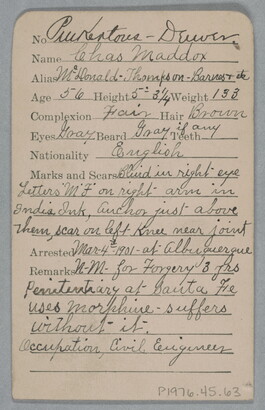 No. Pinkertons - Denver.
Name Chas Maddox
Alias McDonald - Thompson - Barnes + etc
Age 56 Height 5=3¼ Weight 133
Complexion Fair Hair Brown
Eyes Gray Beard Gray if any Teeth
Nationality English
Marks and Scars in right eye
Letters "M F" on right arm in
India Ink, Anchor just above
them, scar on left knee near joint
Arrested Mar 4th 1901 - at Albuquerque
Remarks N-M- for Forgery 3 yrs
penitentiary at Santa Fe
uses morphine - suffers
without it.
Occupation, Civil Engineer
P1976.45.63